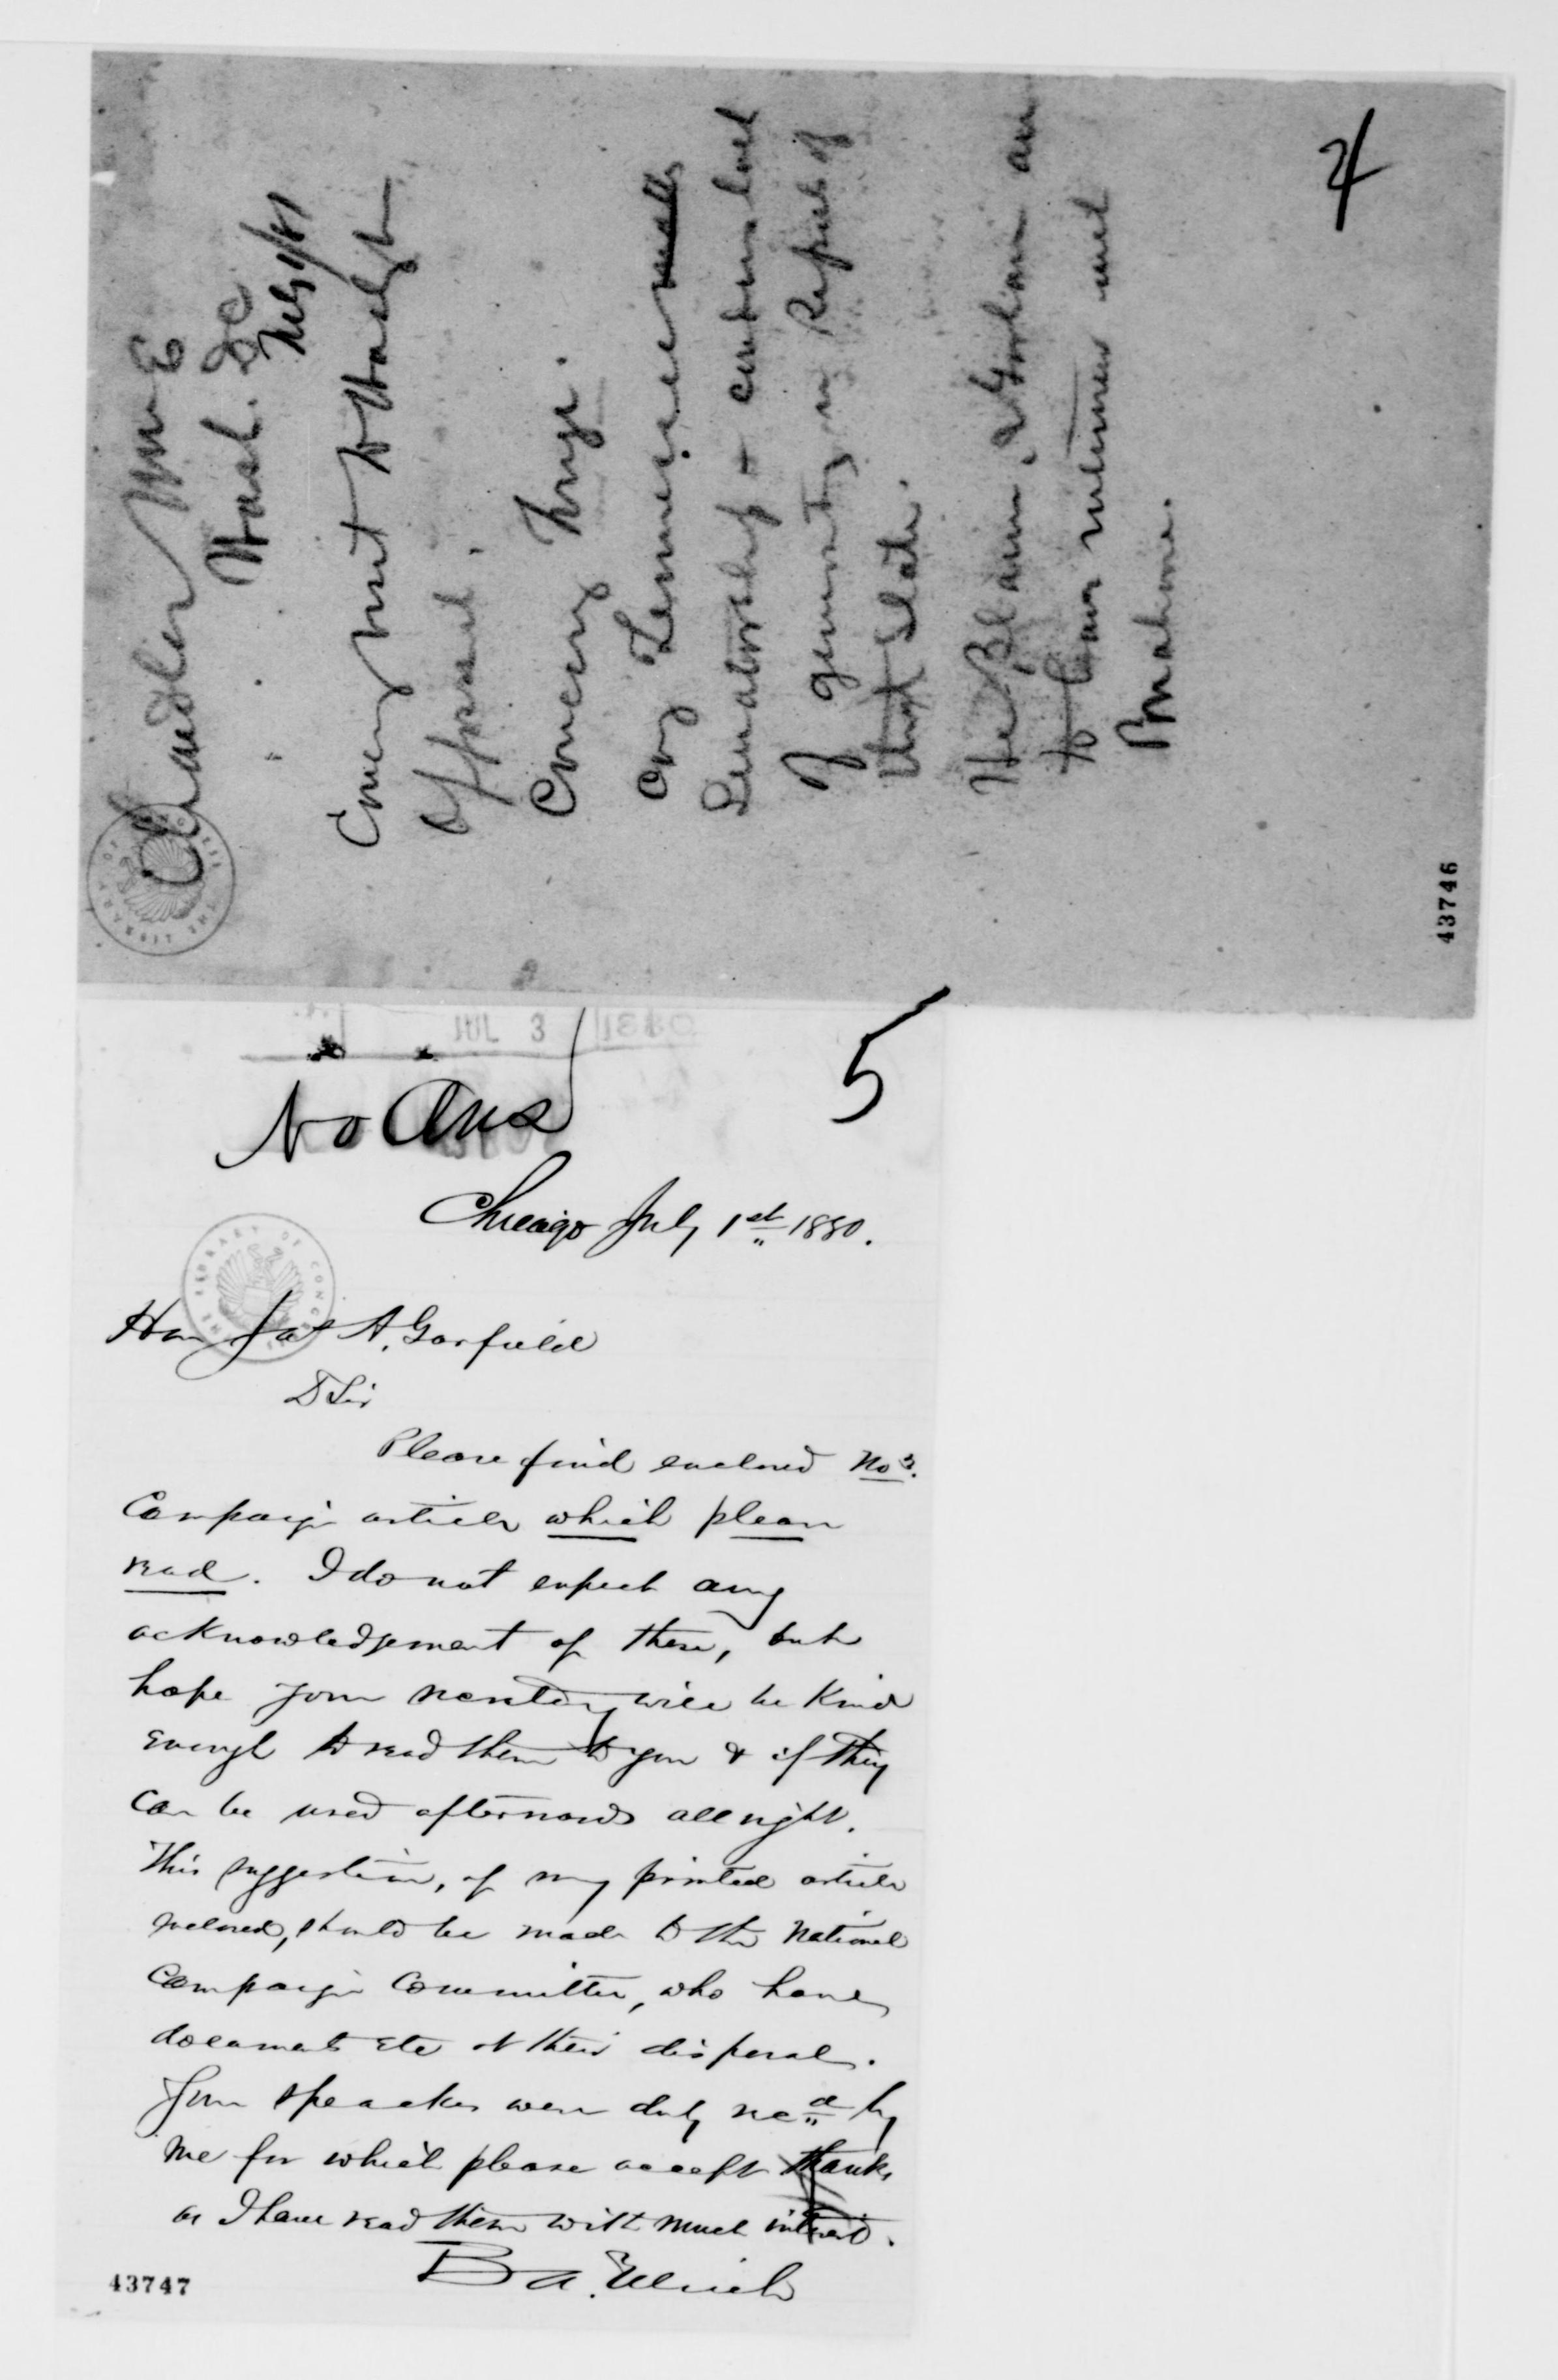 Chandler Wm E
Wash. DC
July 1/81
Emery must be
Opposed.
Concerning
Senatorship +
of in Repub of
that State.
He Blaine & Gorham an
to
Mahone.
4
43746
JUL 3 1880
No Ans
5
Chicago July 1st 1880.
Hon Jas A. Garfield
D Sir
Please find enclosed No 3.
Campaign article which please
read. I do not expect any
acknowledgement of these, but
hope your will be kind
enough to read them to you & if they
can be used afterwards all right.
This suggestion, of my printed article
inclosed, should be made to the National
Campaign Committee, who have
documents etc at their disposal.
Your speaches were duly recd by
me for which please accept thanks
as I have read them with much interest.
B A. Ulrich
43747